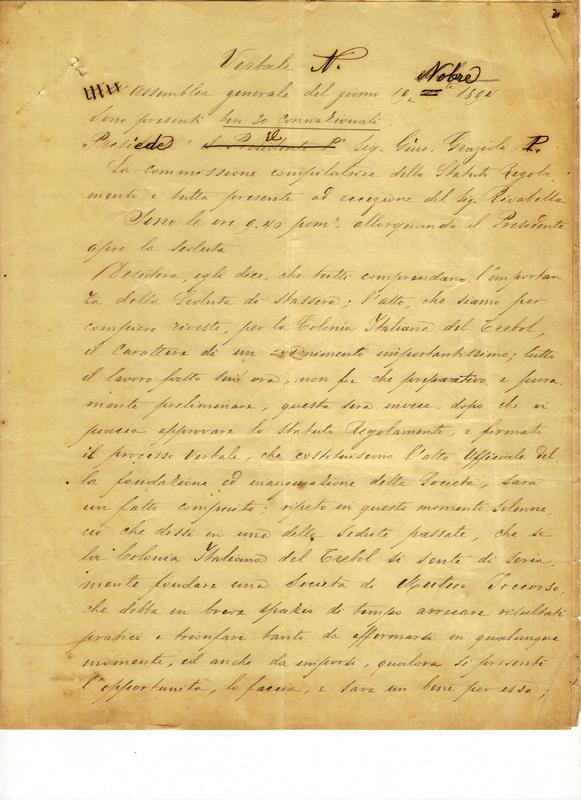 Verbale N.
Assemblea generale del giorno 19 Nobre 1894
Sono presenti ben 30 connazionali.
Presiede il Sig. Gius. Graziola
La commissione compilatrice dello Statuto Regola
mento e tutta presente ad eccezione del Sig. Rivabella
Sono le ore 9.40 pom. allorquando il Presidente
apre la seduta
Desidera, egli dice, che tutti comprendano l'importan
za della Seduta di stassera; l'atto, che siamo per
compiere riveste, per la Colonia Italiana del Trebol,
il Carattere di un importantissimo; tutto
il lavoro fatto sin ora, non fu che preparativo e pura
mente preliminare, questa sera invece, dopo che vi
piaccia approvare lo Statuto Regolamento, e firmato
il processo Verbale, che costituiscono l'atto Ufficiale del
la fondazione ed inaugurazione della Società, sara
un fatto compiuto; ripeto in questo momento solenne,
ciò che dissi in una delle sedute passate, che se
la Colonia Italiana del Trebol si sente di seria
mente fondare una Società di Mutuo Soccorso,
che debba in breve spazio di tempo arrecare risultati
pratici e trionfare tanto da affermarsi in qualunque
momento, ed anche da imporsi, qualora si presenti
l'opportunità, lo faccia, e sara un bene per essa;